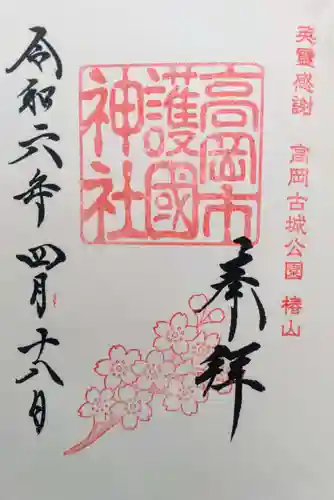 英靈感謝 高岡古城公園 椿山
高岡市
護國
神社
奉拜
令和六年四月十六日